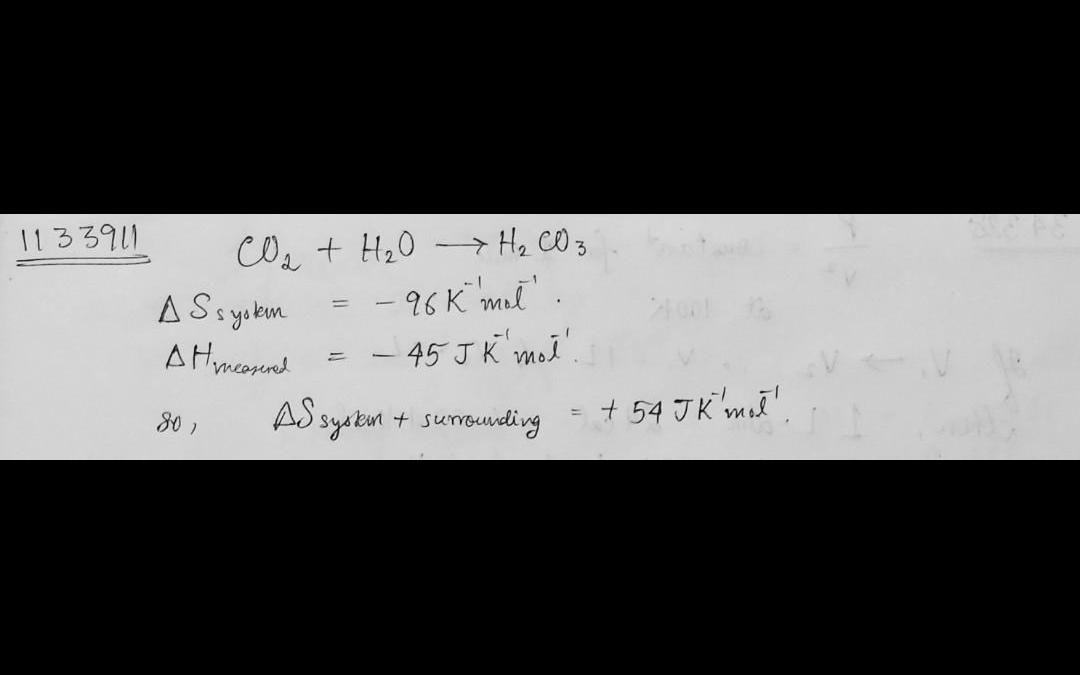 1133911
CO₂ + H₂O → H₂CO₃
ΔS system = - 96 K⁻¹mol⁻¹.
ΔH measured = - 45 J K⁻¹mol⁻¹.
so, ΔS system + surrounding = + 54 JK⁻¹mol⁻¹.